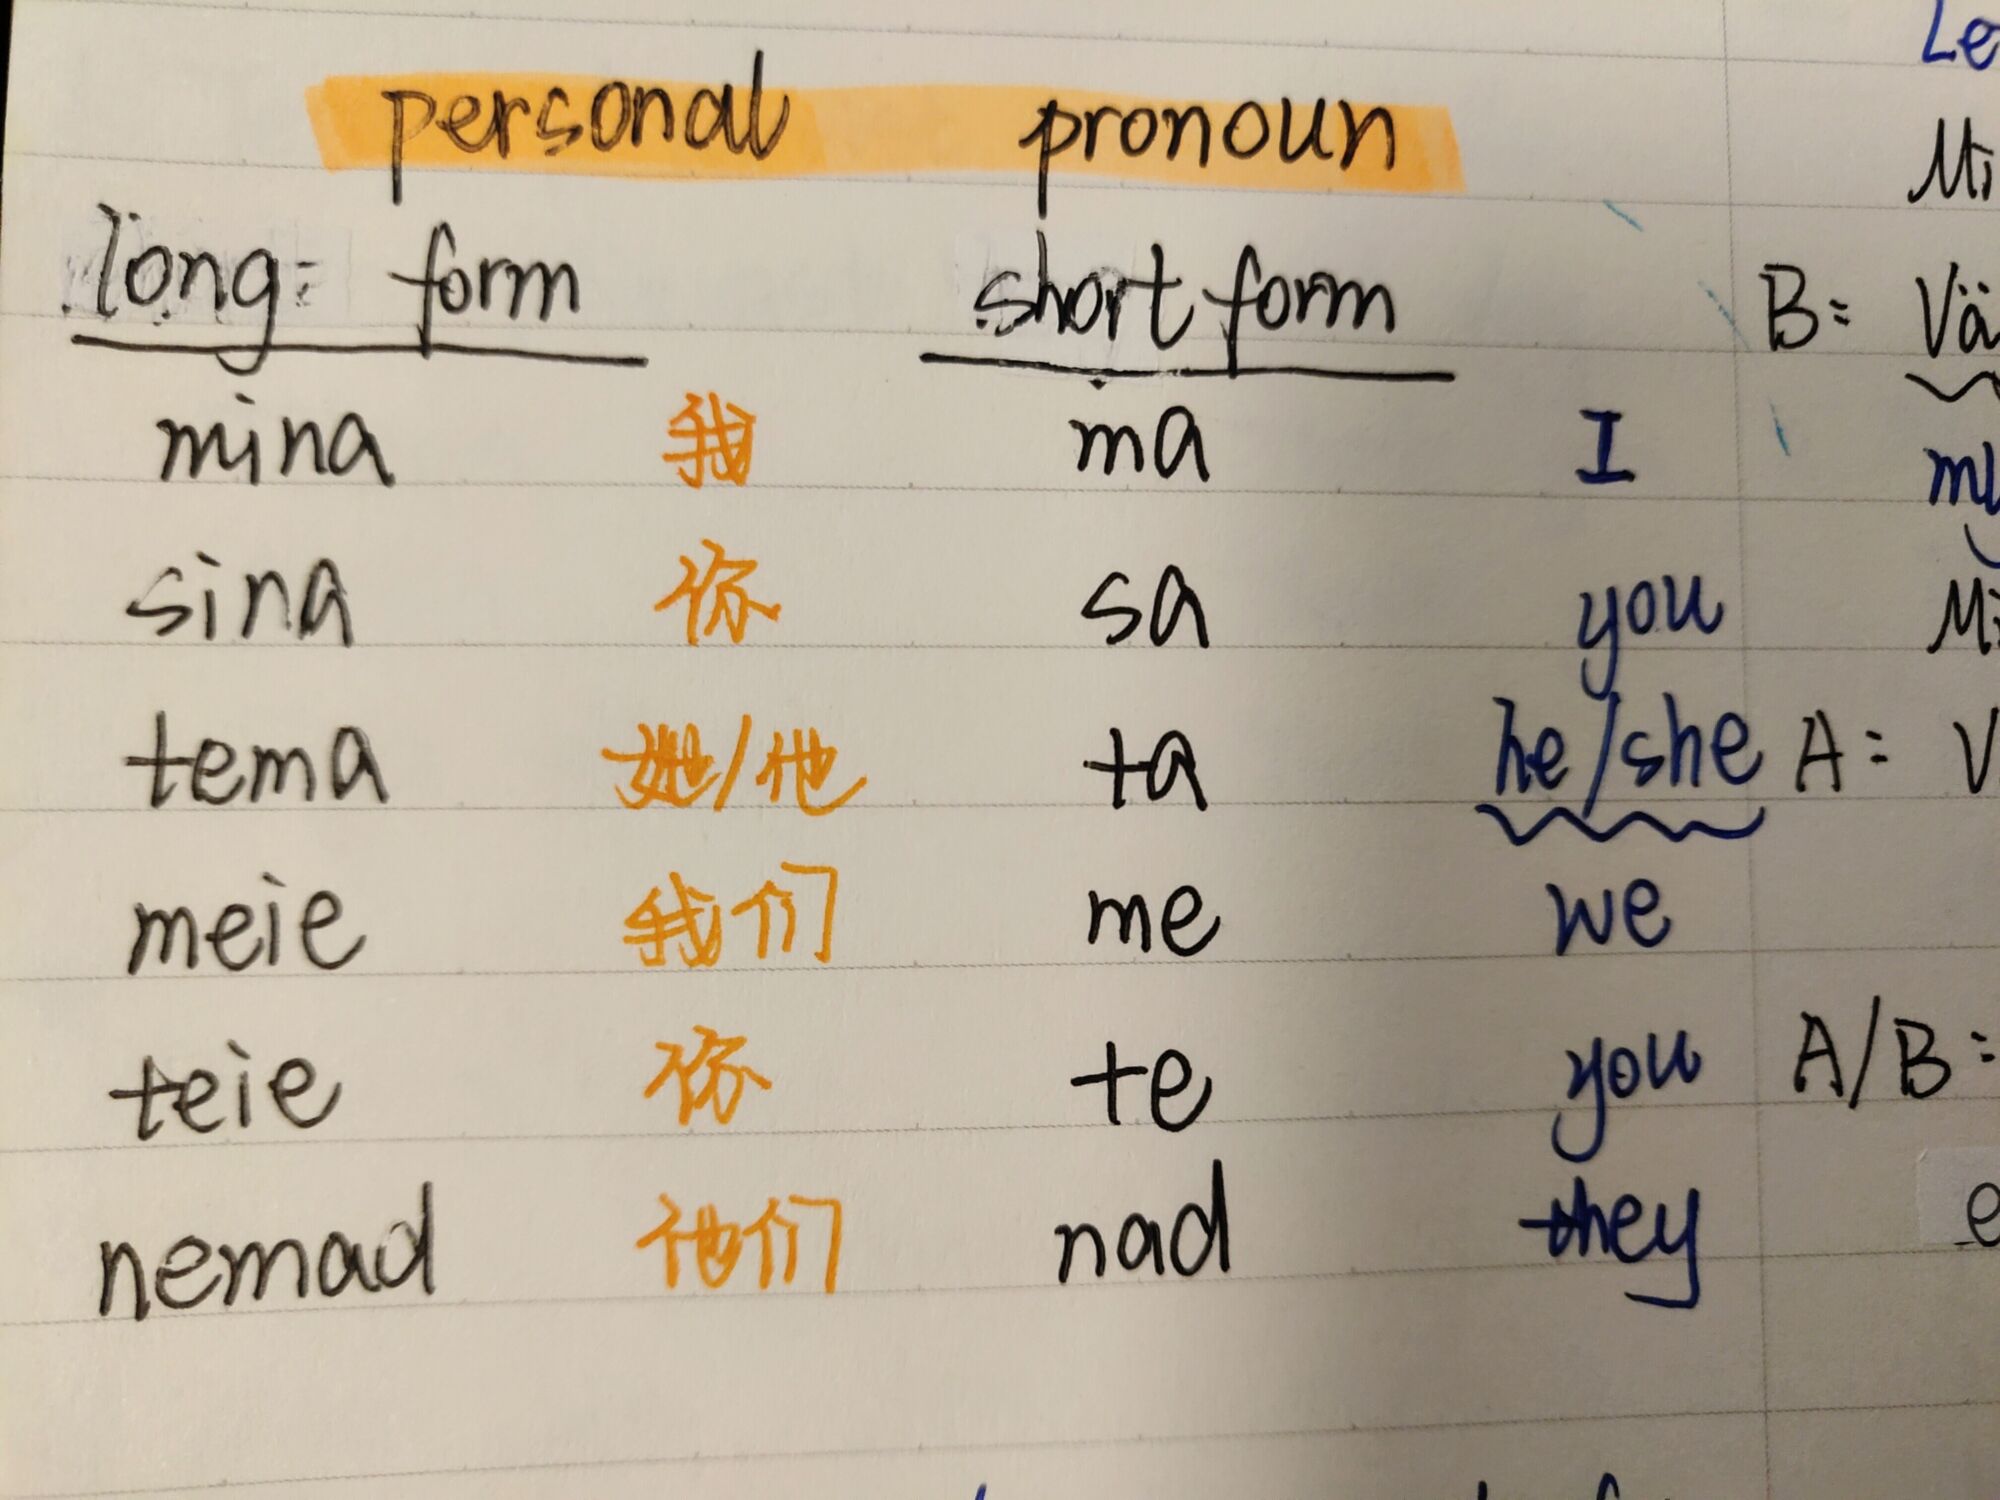 personal pronoun
long: form short form
mina 我 ma I
sina 你 sa you
tema 她/他 ta he/she
meie 我们 me we
teie 你 te you
nemad 他们 nad they
B:
A:
A/B: